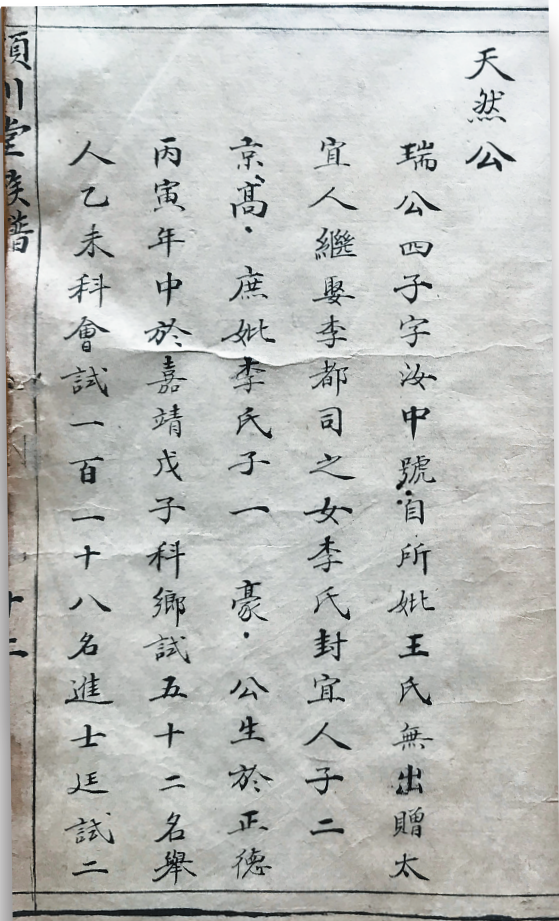 天然公
瑞公四子字汝中號自所妣王氏無出贈太
宜人繼娶李都司之女李氏封宜人子二
京髙庶妣李氏子一　豪公生於正德
丙寅年中於嘉靖戊子科鄉試五十二名舉
人乙未科會試一百一十八名進士廷試二
川堂族譜
十二